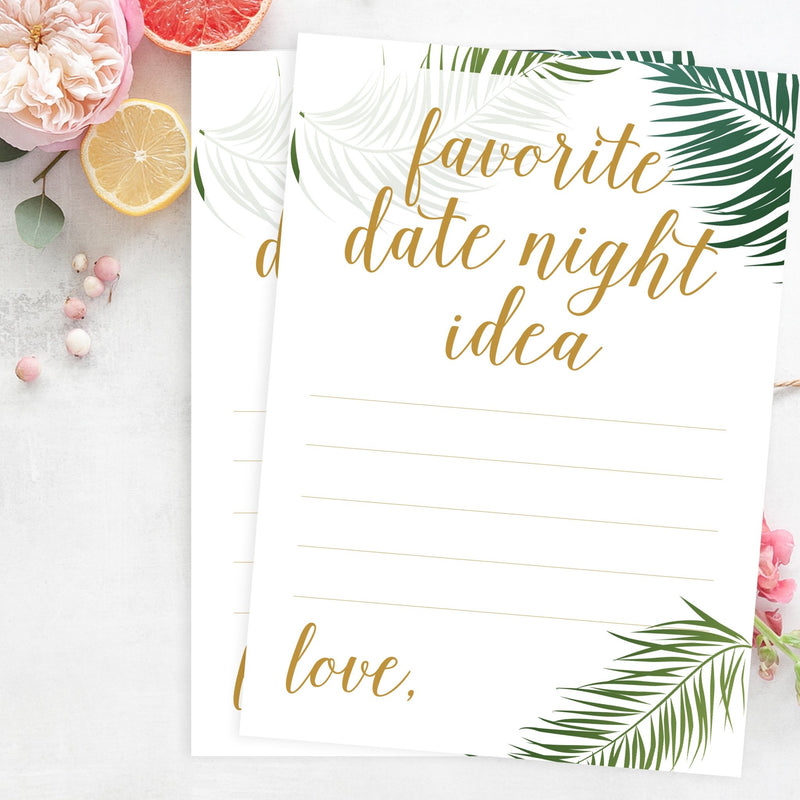 favorite
date night
idea
love,